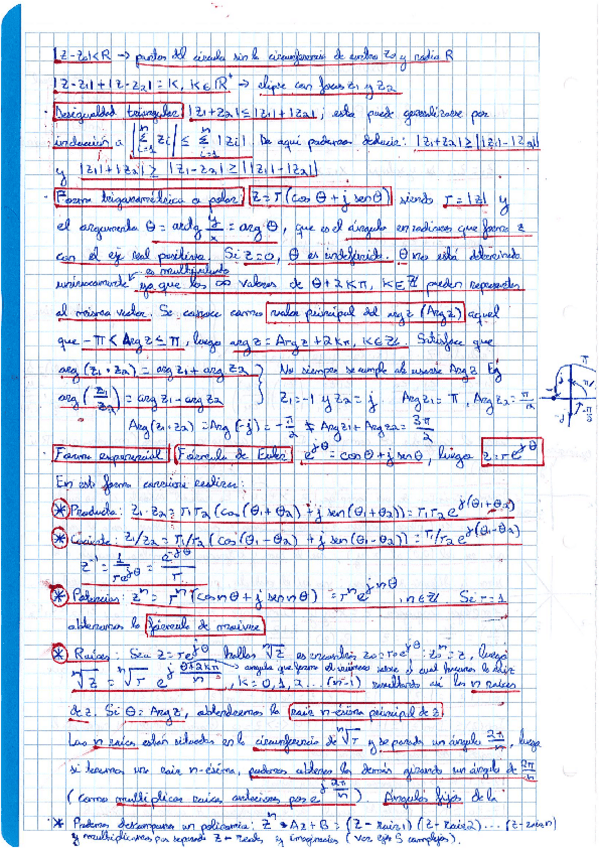 |z-z₀|<R → puntos del círculo sin la circunferencia de centro z₀ y radio R
|z-z₁|+|z-z₂| = K, K∈R⁺ → elipse con focos z₁ y z₂
· Desigualdad triangular |z₁+z₂| ≤ |z₁|+|z₂|, esta puede generalizarse por
inducción a |∑ᵢ₌₁ⁿ zᵢ| ≤ ∑ᵢ₌₁ⁿ |zᵢ|. De aquí podemos deducir: |z₁+z₂| ≥ ||z₁|-|z₂||
y |z₁|+|z₂| ≥ |z₁-z₂| ≥ ||z₁|-|z₂||
· Forma trigonométrica o polar z = r(cos θ + j sen θ) siendo r = |z| y
el argumento θ = arctg y/x = arg θ, que es el ángulo en radianes que forma z
con el eje real positivo. Si z=0, θ es indefinido. θ no está determinado
unívocamente ya que los ∞ valores de θ+2Kπ, K∈Z pueden representar
es multiforme
al mismo vector. Se conoce como valor principal del arg z (Arg z) aquel
que -π < Arg z ≤ π, luego arg z = Arg z + 2Kπ, K∈Z. Satisface que
arg(z₁·z₂) = arg z₁ + arg z₂ } No siempre se cumple al usarse Arg z Ej
arg(z₁/z₂) = arg z₁ - arg z₂ z₁=-1 y z₂=j Arg z₁ = π, Arg z₂ = π/2
Arg(z₁·z₂) = Arg(-j) = -π/2 ≠ Arg z₁ + Arg z₂ = 3π/2
· Forma exponencial Fórmula de Euler e^{jθ} = cos θ + j sen θ, luego z = re^{jθ}
En esta forma conviene realizar:
* Producto: z₁·z₂ = r₁r₂(cos(θ₁+θ₂) + j sen(θ₁+θ₂)) = r₁r₂e^{j(θ₁+θ₂)}
* Cociente: z₁/z₂ = r₁/r₂(cos(θ₁-θ₂) + j sen(θ₁-θ₂)) = r₁/r₂e^{j(θ₁-θ₂)}
z⁻¹ = 1/re^{jθ} = e^{-jθ}/r
* Potencias: zⁿ = rⁿ(cos nθ + j sen nθ) = rⁿe^{jnθ}, n∈Z Si r=1
obtenemos la fórmula de moivre
* Raíces: Sea z=re^{jθ} hallar ⁿ√z es encontrar z₀=r₀e^{jθ₀}: z₀ⁿ = z, luego
ⁿ√z = ⁿ√r e^{j(θ+2Kπ)/n}, K=0,1,2...(n-1) resultando así las n raíces
ángulo que forma el número sobre el cual hacemos la raíz
de z. Si θ = Arg z, obtendremos la raíz n-ésima principal de z
Las n raíces están situadas en la circunferencia de ⁿ√r y separadas un ángulo 2π/n, luego
si tenemos una raíz n-ésima, podemos obtener las demás girando un ángulo de 2π/n
(como multiplicar raíces anteriores por e^{j2π/n}). Ángulos fijos de la
* Podemos descomponer un polinomio: zⁿ + Az + B = (z-raiz1)(z-raiz2)...(z-raizn)
y multiplicamos por separado z - reales y imaginarios (ver ejs 5 complejos).